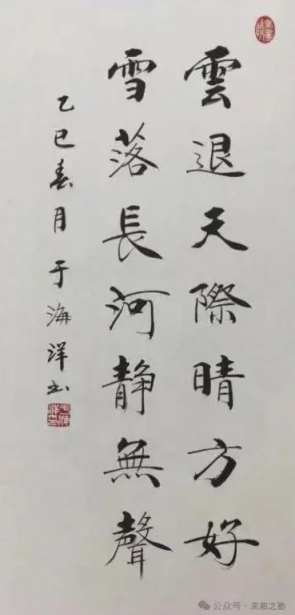 雲退天際晴方好
雪落長河静無聲
乙巳春月于海洋书
公众号·京都之声